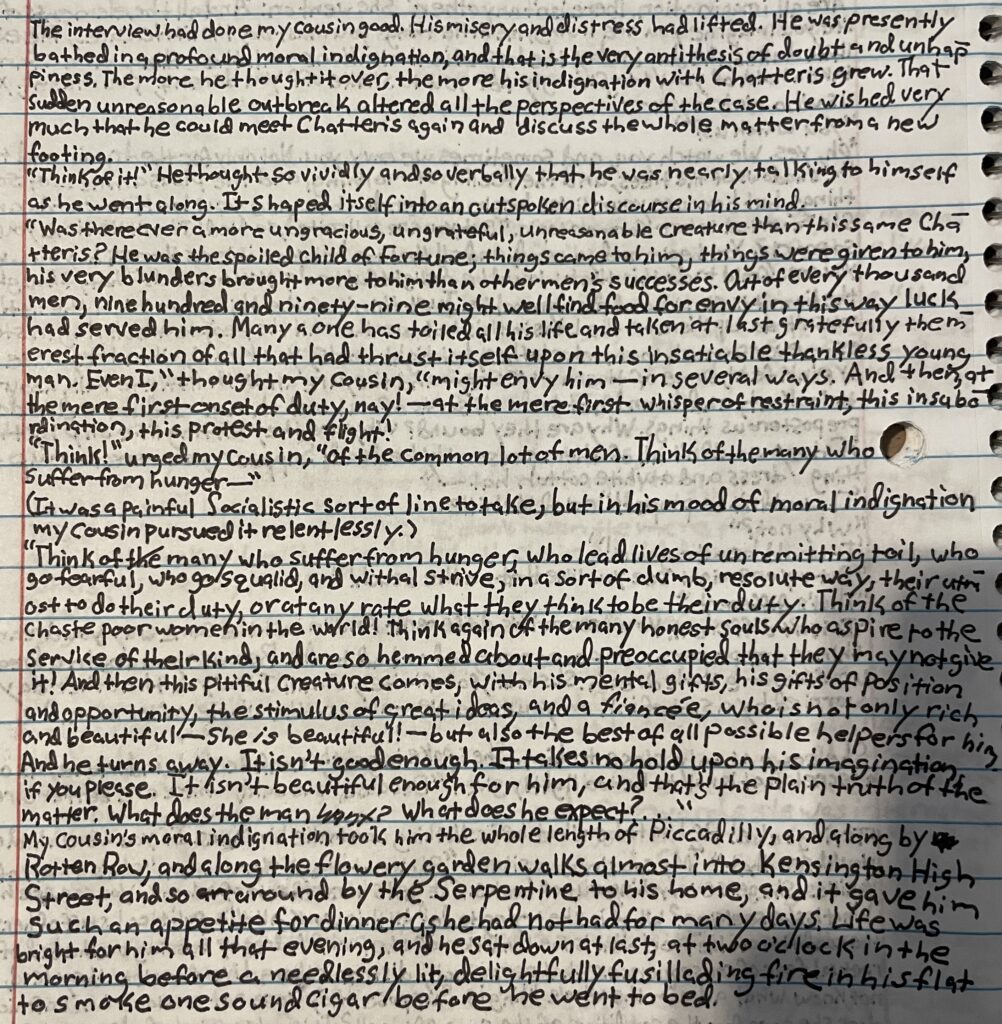 The interview had done my cousin good. His misery and distress had lifted. He was presently
bathed in a profound moral indignation, and that is the very antithesis of doubt and unhap
piness. The more he thought it over, the more his indignation with Chatteris grew. That
sudden unreasonable outbreak altered all the perspectives of the case. He wished very
much that he could meet Chatteris again and discuss the whole matter from a new
footing.
"Think of it!" He thought so vividly and so verbally that he was nearly talking to himself
as he went along. It shaped itself into an outspoken discourse in his mind.
"Was there ever a more ungracious, ungrateful, unreasonable creature than this same Cha
tteris? He was the spoiled child of Fortune; things came to him, things were given to him,
his very blunders brought more to him than other men's successes. Out of every thousand
men, nine hundred and ninety-nine might well find food for envy in this way luck
had served him. Many a one has toiled all his life and taken at last gratefully the m
erest fraction of all that had thrust itself upon this insatiable thankless young
man. Even I," thought my cousin, "might envy him — in several ways. And then, at
the mere first onset of duty, nay! — at the mere first whisper of restraint, this insubo
rdination, this protest and flight!
"Think!" urged my cousin, "of the common lot of men. Think of the many who
suffer from hunger—"
(It was a painful Socialistic sort of line to take, but in his mood of moral indignation
my cousin pursued it relentlessly.)
"Think of the many who suffer from hunger, who lead lives of unremitting toil, who
go fearful, who go squalid, and withal strive, in a sort of dumb, resolute way, their utm
ost to do their duty, or at any rate what they think to be their duty. Think of the
chaste poor women in the world! Think again of the many honest souls who aspire to the
service of their kind, and are so hemmed about and preoccupied that they may not give
it! And then this pitiful creature comes, with his mental gifts, his gifts of position
and opportunity, the stimulus of great ideas, and a fiancée, who is not only rich
and beautiful — she is beautiful! — but also the best of all possible helpers for him,
And he turns away. It isn't good enough. It takes no hold upon his imagination,
if you please. It isn't beautiful enough for him, and that's the plain truth of the
matter. What does the man want? What does he expect? . . "
My cousin's moral indignation took him the whole length of Piccadilly, and along by
Rotten Row, and along the flowery garden walks almost into Kensington High
Street, and so around by the Serpentine to his home, and it gave him
such an appetite for dinner as he had not had for many days. Life was
bright for him all that evening, and he sat down at last, at two o'clock in the
morning before a needlessly lit, delightfully fusillading fire in his flat
to smoke one sound cigar before he went to bed.